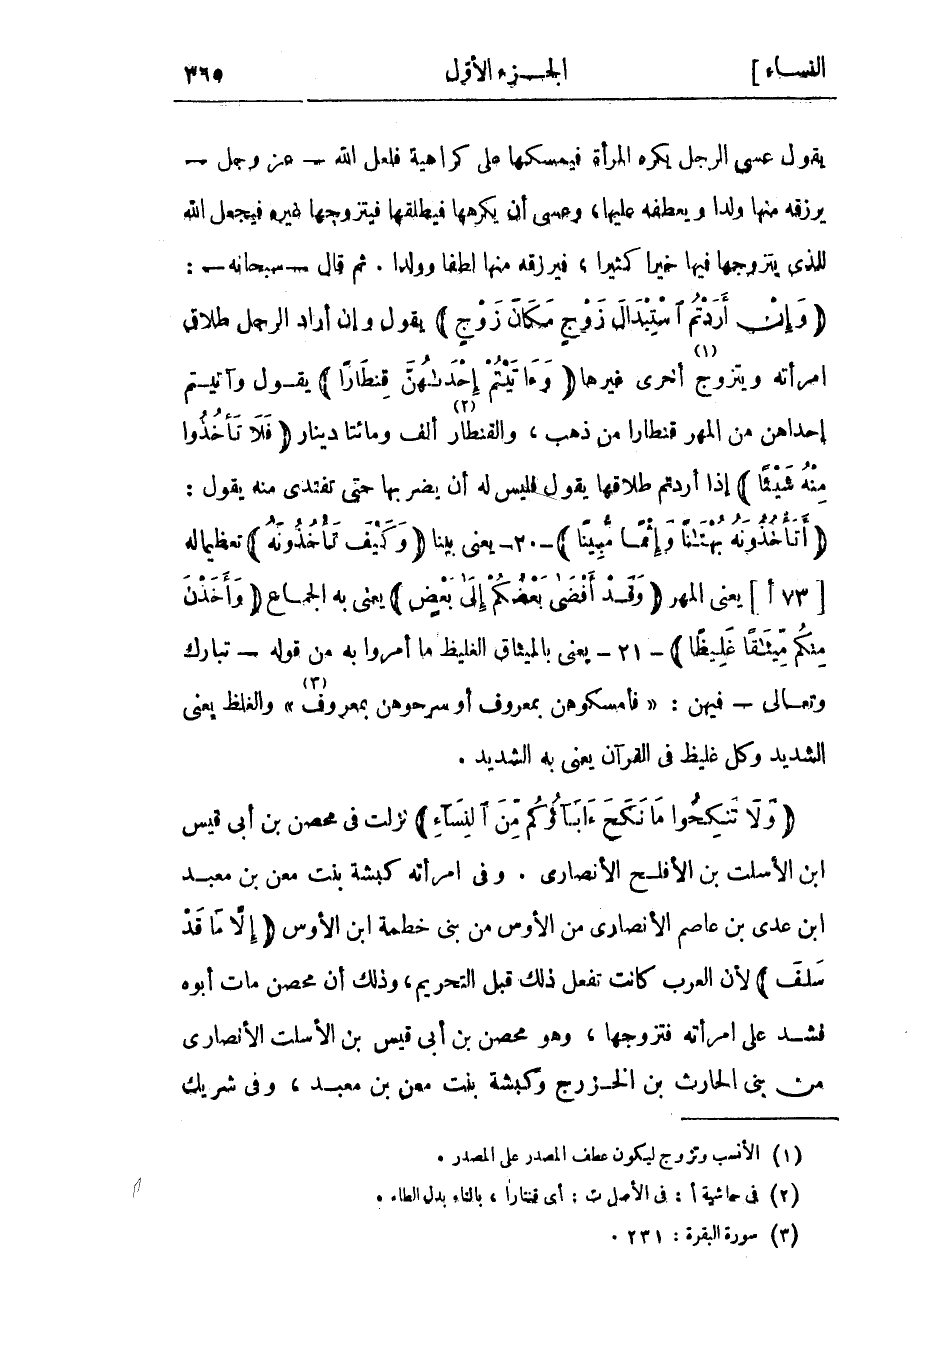 النساء ] الجزء الأول ٣٦٥
يقول عسى الرجل يكره المرأة فيمسكها على كراهية فلعل الله — عز وجل —
يرزقه منها ولدا ويعطفه عليها، وعسى أن يكرهها فيطلقها فيتزوجها غيره فيجعل الله
للذى يتزوجها فيها خيرا كثيرا ، فيرزقه منها لطفا وولدا . ثم قال — سبحانه — :
﴿ وَإِنْ أَرَدْتُمُ ٱسْتِبْدَالَ زَوْجٍ مَكَانَ زَوْجٍ ﴾ يقول وإن أراد الرجل طلاق
امرأته ويتزوج (١) أخرى غيرها ﴿ وَءَاتَيْتُمْ إِحْدَىٰهُنَّ قِنطَارًا ﴾ يقول وآتيتم
إحداهن من المهر قنطارا من ذهب ، والقنطار (٢) ألف ومائتا دينار ﴿ فَلَا تَأْخُذُوا
مِنْهُ شَيْئًا ﴾ إذا أردتم طلاقها يقول فليس له أن يضر بها حتى تفتدى منه يقول :
﴿ أَتَأْخُذُونَهُ بُهْتَٰنًا وَإِثْمًا مُّبِينًا ﴾ - ٢٠ - يعنى بينا ﴿ وَكَيْفَ تَأْخُذُونَهُ ﴾ تعظيما له
[ ٧٣ أ ] يعنى المهر ﴿ وَقَدْ أَفْضَىٰ بَعْضُكُمْ إِلَىٰ بَعْضٍ ﴾ يعنى به الجماع ﴿ وَأَخَذْنَ
مِنكُم مِّيثَٰقًا غَلِيظًا ﴾ - ٢١ - يعنى بالميثاق الغليظ ما أمروا به من قوله — تبارك
وتعالى — فيهن : « فأمسكوهن بمعروف أو سرحوهن بمعروف (٣) » والغلظ يعنى
الشديد وكل غليظ فى القرآن يعنى به الشديد .
﴿ وَلَا تَنكِحُوا مَا نَكَحَ ءَابَآؤُكُم مِّنَ ٱلنِّسَآءِ ﴾ نزلت فى محصن بن أبى قيس
ابن الأسلت بن الأفلح الأنصارى . وفى امرأته كبشة بنت معن بن معبد
ابن عدى بن عاصم الأنصارى من الأوس من بنى خطمة ابن الأوس ﴿ إِلَّا مَا قَدْ
سَلَفَ ﴾ لأن العرب كانت تفعل ذلك قبل التحريم، وذلك أن محصن مات أبوه
فشد على امرأته فتزوجها ، وهو محصن بن أبى قيس بن الأسلت الأنصارى
من بنى الحارث بن الخزرج وكبشة بنت معن بن معبد ، وفى شريك
(١) الأنسب وتزوج ليكون عطف المصدر على المصدر .
(٢) فى حاشية أ : فى الأصل ت : أى قنتارا ، بالتاء بدل الطاء .
(٣) سورة البقرة : ٢٣١ .